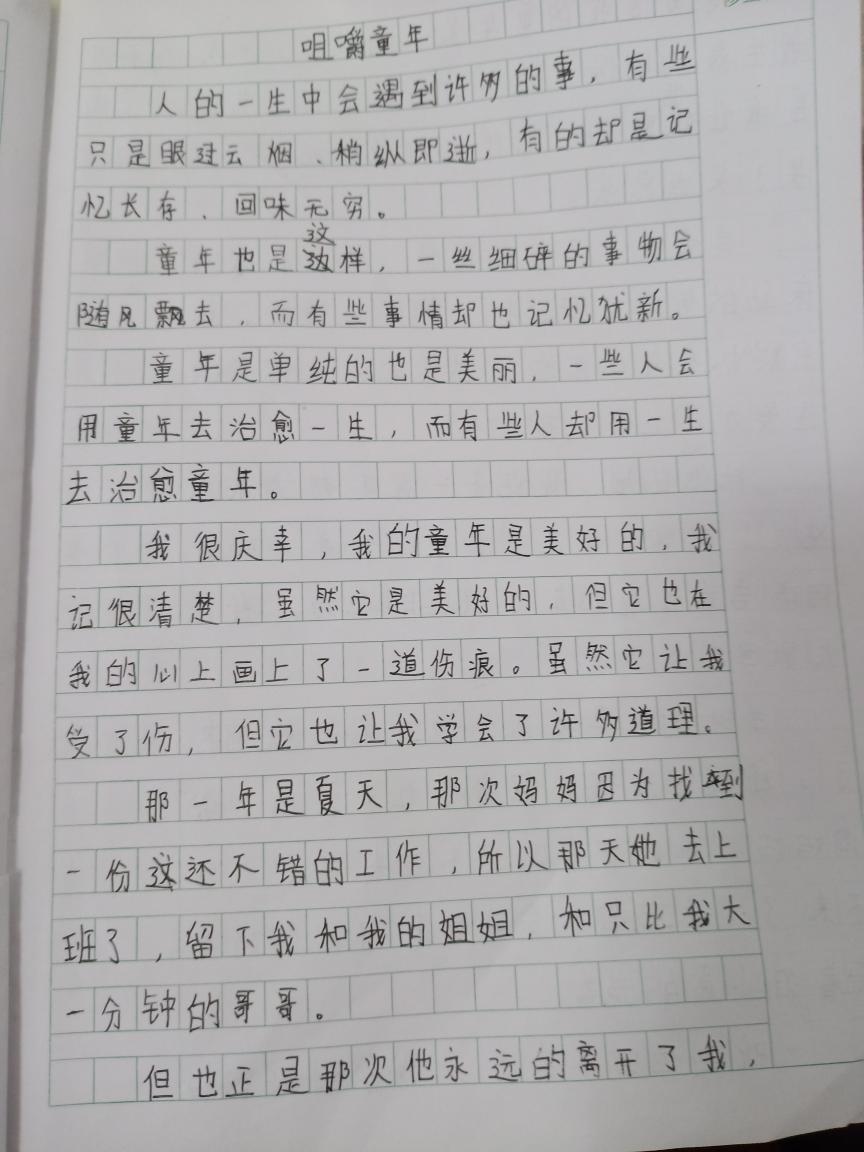 咀嚼童年
人的一生中会遇到许多的事，有些
只是眼过云烟、稍纵即逝，有的却是记
忆长存、回味无穷。
童年也是这样，一丝细碎的事物会
随风飘去，而有些事情却也记忆犹新。
童年是单纯的也是美丽，一些人会
用童年去治愈一生，而有些人却用一生
去治愈童年。
我很庆幸，我的童年是美好的，我
记很清楚，虽然它是美好的，但它也在
我的心上画上了一道伤痕。虽然它让我
受了伤，但它也让我学会了许多道理。
那一年是夏天，那次妈妈因为找到
一份这还不错的工作，所以那天她去上
班了，留下我和我的姐姐，和只比我大
一分钟的哥哥。
但也正是那次他永远的离开了我，